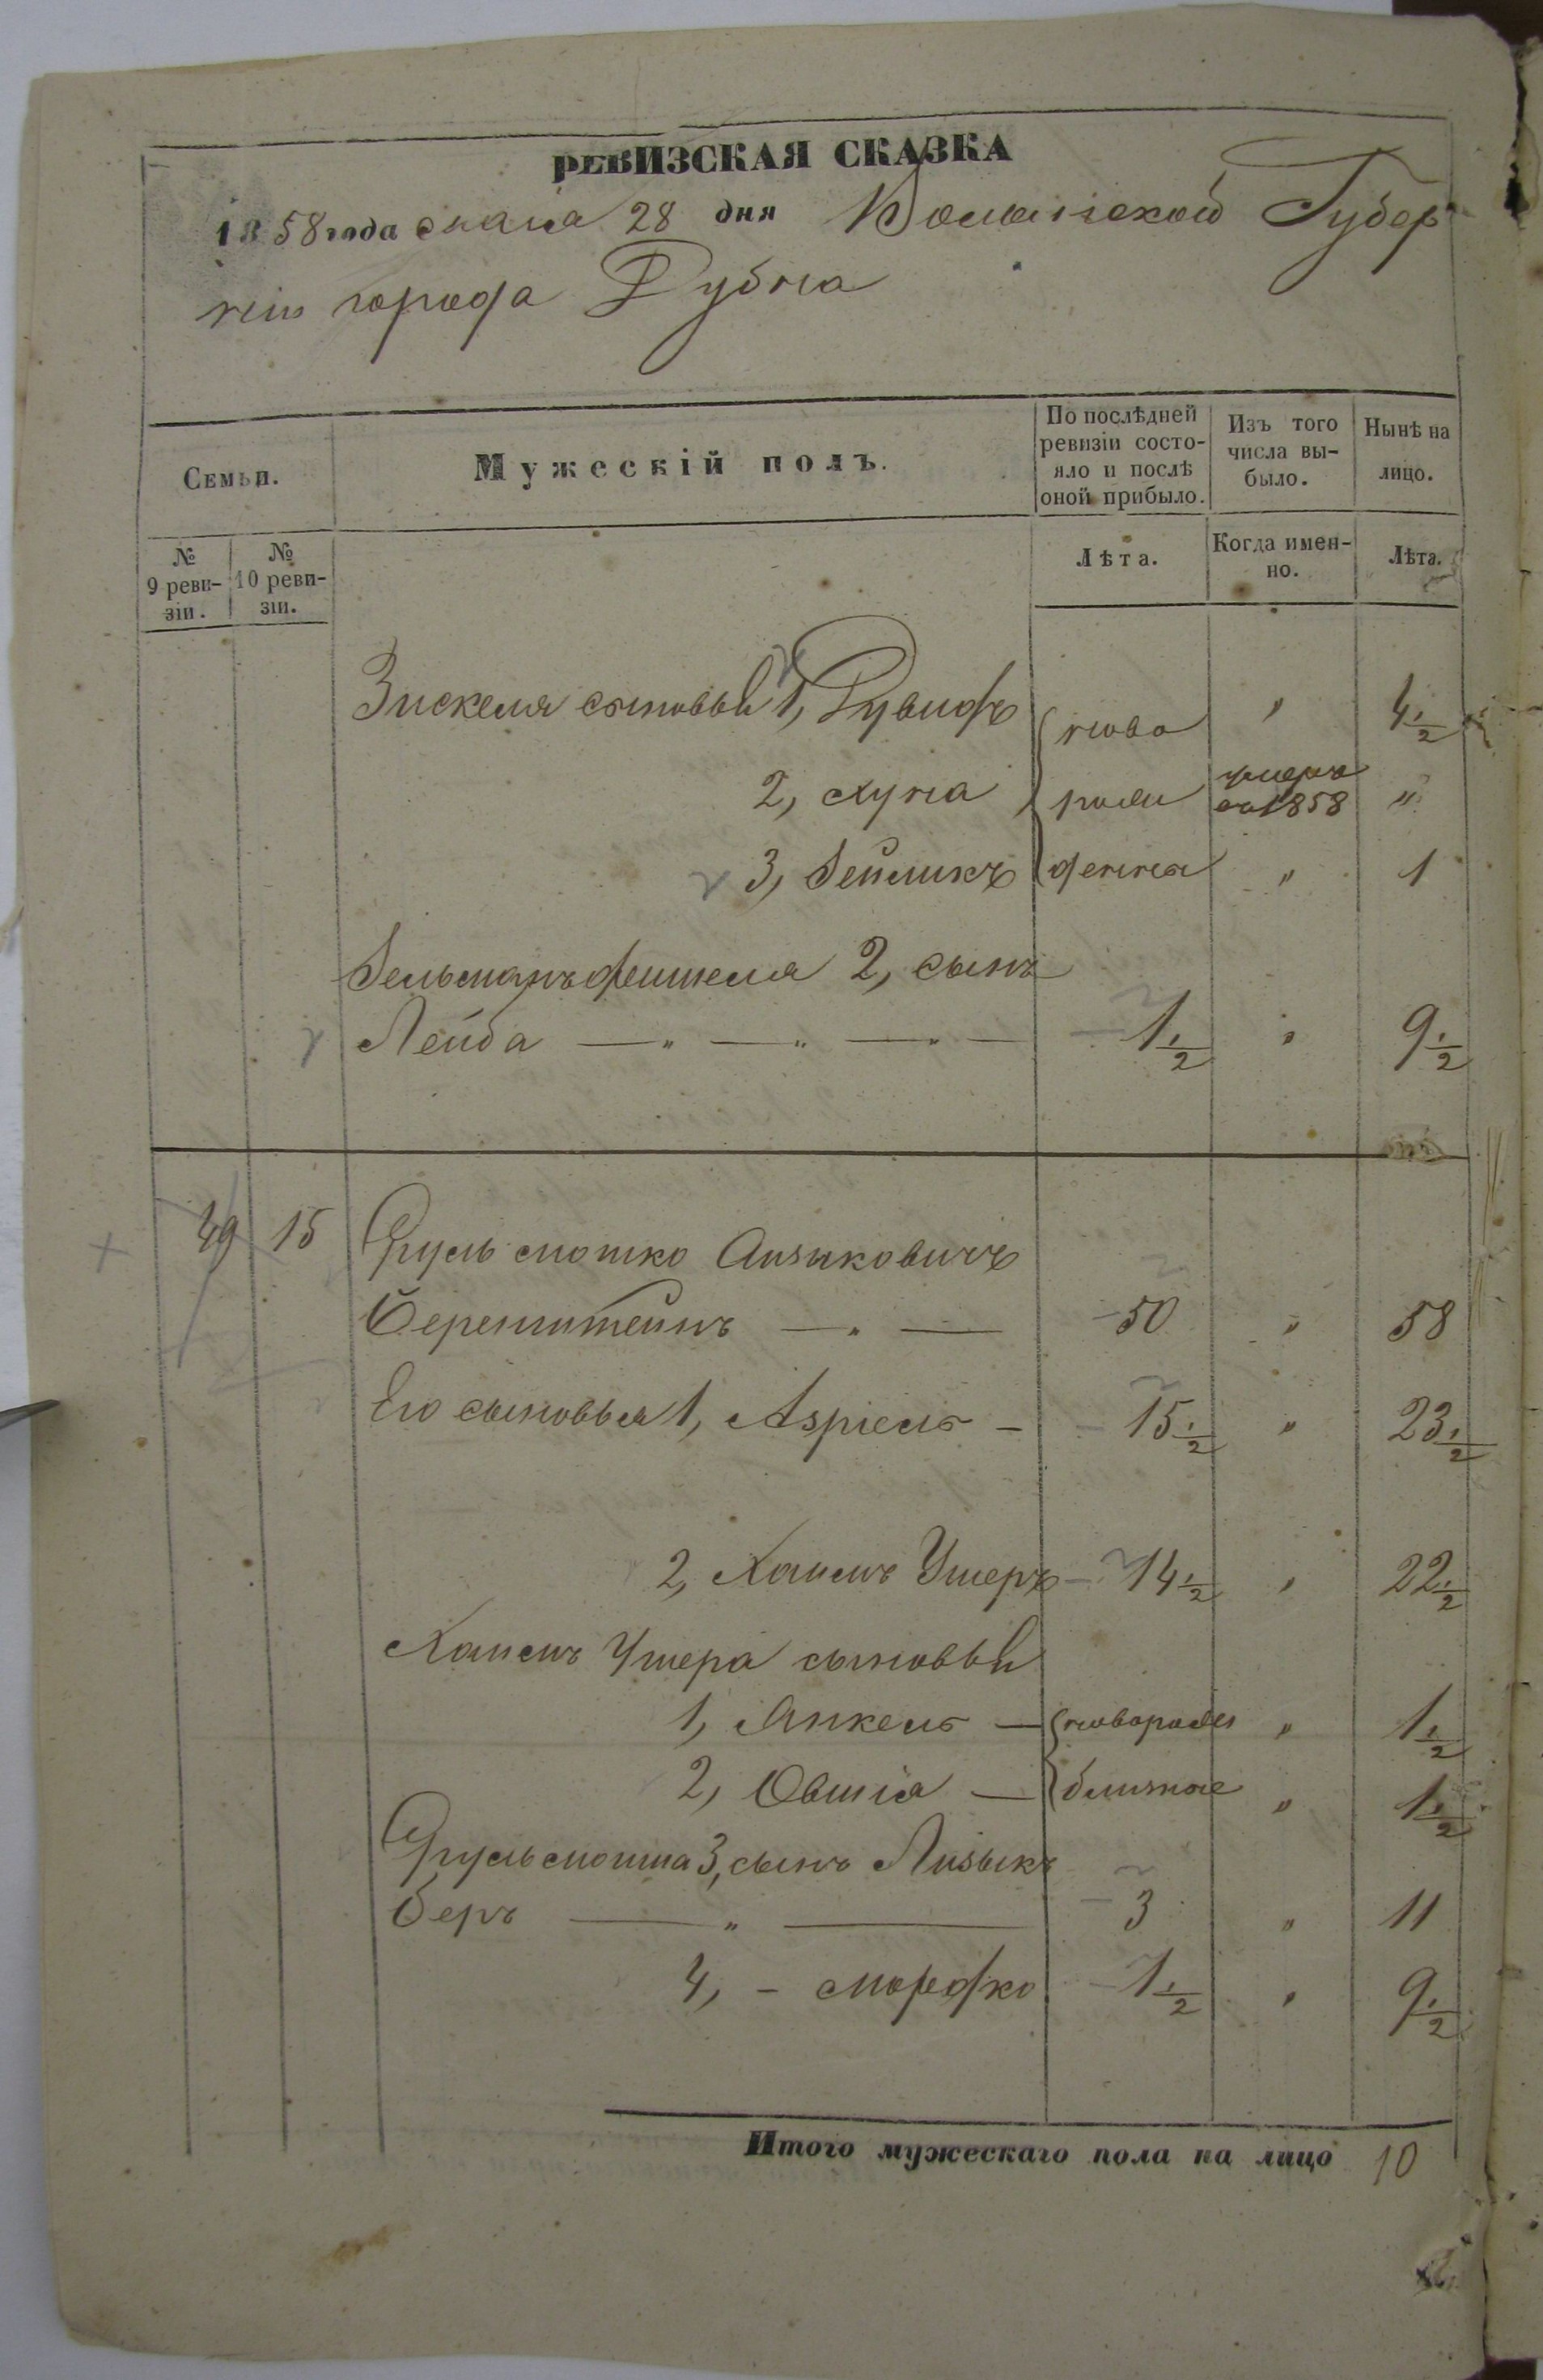 РЕВИЗСКАЯ СКАЗКА
1858 года Маія 28 дня Волынской Губер
ніи города Дубна
Семьи.
Мужескій полъ.
По послѣдней ревизіи состо-
яло и послѣ
оной прибыло.
Изъ того
числа вы-
было.
Нынѣ на
лицо.
№
9 реви-
зіи.
№
10 реви-
зіи.
Лѣта.
Когда имен-
но.
Лѣта.
Зискеля сыновья 1, Дувидъ ново " 4 1/2
2, Хуна рож умеръ въ 1858 "
3, Зейликъ денные " 1
Зельманъ Фишеля 2, сынъ
Лейба — " — " — " — 1 1/2 " 9 1/2
49 15 Сруль Мошко Айзыковичъ
Беренштейнъ — " — 50 " 58
Его сыновья 1, Азріель - 15 1/2 " 23 1/2
2, Хаимъ Ушеръ - 14 1/2 " 22 1/2
Хаимъ Ушера сыновья
1, Янкель — новорож " 1 1/2
2, Овшія — близные " 1 1/2
Сруль Мошка 3, сынъ Айзыкъ
Беръ — " — 3 " 11
4, - Мордко 1 1/2 " 9 1/2
Итого мужескаго пола на лицо 10